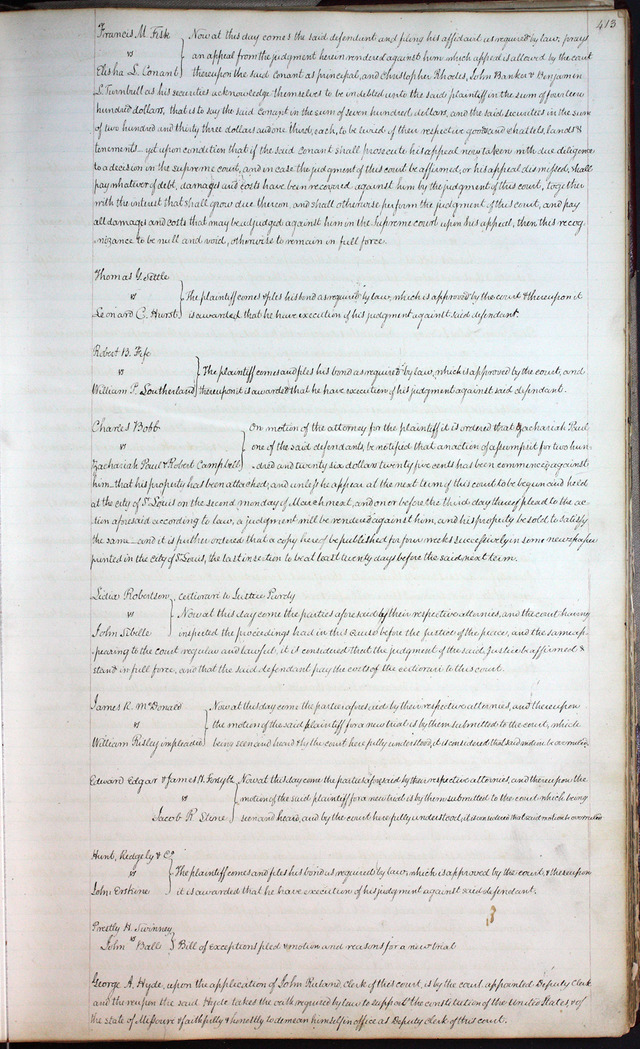 413
Francis M. Fisk Now at this day comes the said defendant and filing his affidavit as required by law, prays
vs an appeal from the judgment herein rendered against him which appeal is allowed by the court
Elisha L. Conant thereupon the said Conant as principal, and Christopher Rhodes, John Banker & Benjamin
L. Turnbull as his securities acknowledge themselves to be indebted unto the said plaintiff in the sum of fourteen
hundred dollars, that is to say the said Conant in the sum of seven hundred dollars, and the said securities in the sum
of two hundred and thirty three dollars and one third, each, to be levied of their respective goods and chattels, lands &
tenements – yet upon condition that if the said Conant shall prosecute his appeal now taken with due diligence
to a decision in the supreme court, and in case the judgment of this court be affirmed, or his appeal dismissed, shall
pay whatever of debt, damages and costs have been recovered against him by the judgment of this court, together
with the interest that shall grow due thereon, and shall otherwise perform the judgment of this court, and pay
all damages and costs that may be adjudged against him in the Supreme court upon his appeal, then this recog-
nizance to be null and void, otherwise to remain in full force.
Thomas G. Settle
vs The plaintiff comes & files his bond as required by law, which is approved by the court & thereupon it
Leonard C. Hurst is awarded that he have execution of his judgment against said defendant.
Robert B. Fife
vs The plaintiff comes and files his bond as required by law, which is approved by the court, and
William P. Southerland thereupon it is awarded that he have execution of his judgment against said defendant.
Charles Bobb On motion of the attorney for the plaintiff it is ordered that Zachariah Paul
vs one of the said defendants, be notified that an action of assumpsit for two hun-
Zachariah Paul & Robert Campbell dred and twenty six dollars twenty five cents has been commenced against
him – that his property has been attached, and unless he appear at the next term of this court to be begun and held
at the city of St. Louis on the second monday of March next, and on or before the third day thereof plead to the ac-
tion aforesaid according to law, a judgment will be rendered against him, and his property be sold to satisfy
the same – and it is further ordered that a copy hereof be published for four weeks successively in some newspaper
printed in the city of St. Louis, the last insertion to be at least twenty days before the said next term.
Lidia Robertson certiorari to Justice Purdy
vs Now at this day come the parties aforesaid by their respective attornies, and the court having
John Sibille inspected the proceedings had in this cause before the Justice of the peace, and the same ap-
pearing to the court regular and lawful, it is considered that the judgment of the said Justice be affirmed &
stand in full force, and that the said defendant pay the costs of the certiorari to this court.
James R. McDonald Now at this day come the parties aforesaid by their respective attornies, and thereupon
vs the motion of the said plaintiff for a new trial is by them submitted to the court, which
William Risley impleaded being seen and heard & by the court here fully understood, it is considered that said motion be overruled.
Edward Edgar & James H. Forsyth Now at this day come the parties aforesaid by their respective attornies, and thereupon the
vs motion of the said plaintiff for a new trial is by them submitted to the court which being
Jacob R. Stine seen and heard, and by the court here fully understood, it is considered that said motion be overruled
Hunt, Ridgely & Co
vs The plaintiff comes and files his bond as required by law, which is approved by the court, & thereupon
John Erskine it is awarded that he have execution of his judgment against said defendant.
Prestly H. Swinney
vs
John Ball Bill of exceptions filed & motion and reasons for a new trial
George A. Hyde, upon the application of John Ruland clerk of this court, is by the court appointed Deputy Clerk
and thereupon the said Hyde takes the oath required by law to support the constitution of the United States, & of
the state of Missouri & faithfully & honestly to demean himself in office as Deputy clerk of this court.